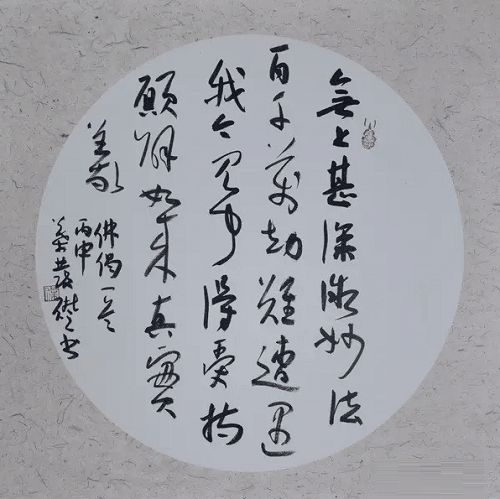 無上甚深微妙法
百千萬劫難遭遇
我今見聞得受持
願解如來真實
義
佛偈一首
丙申
書